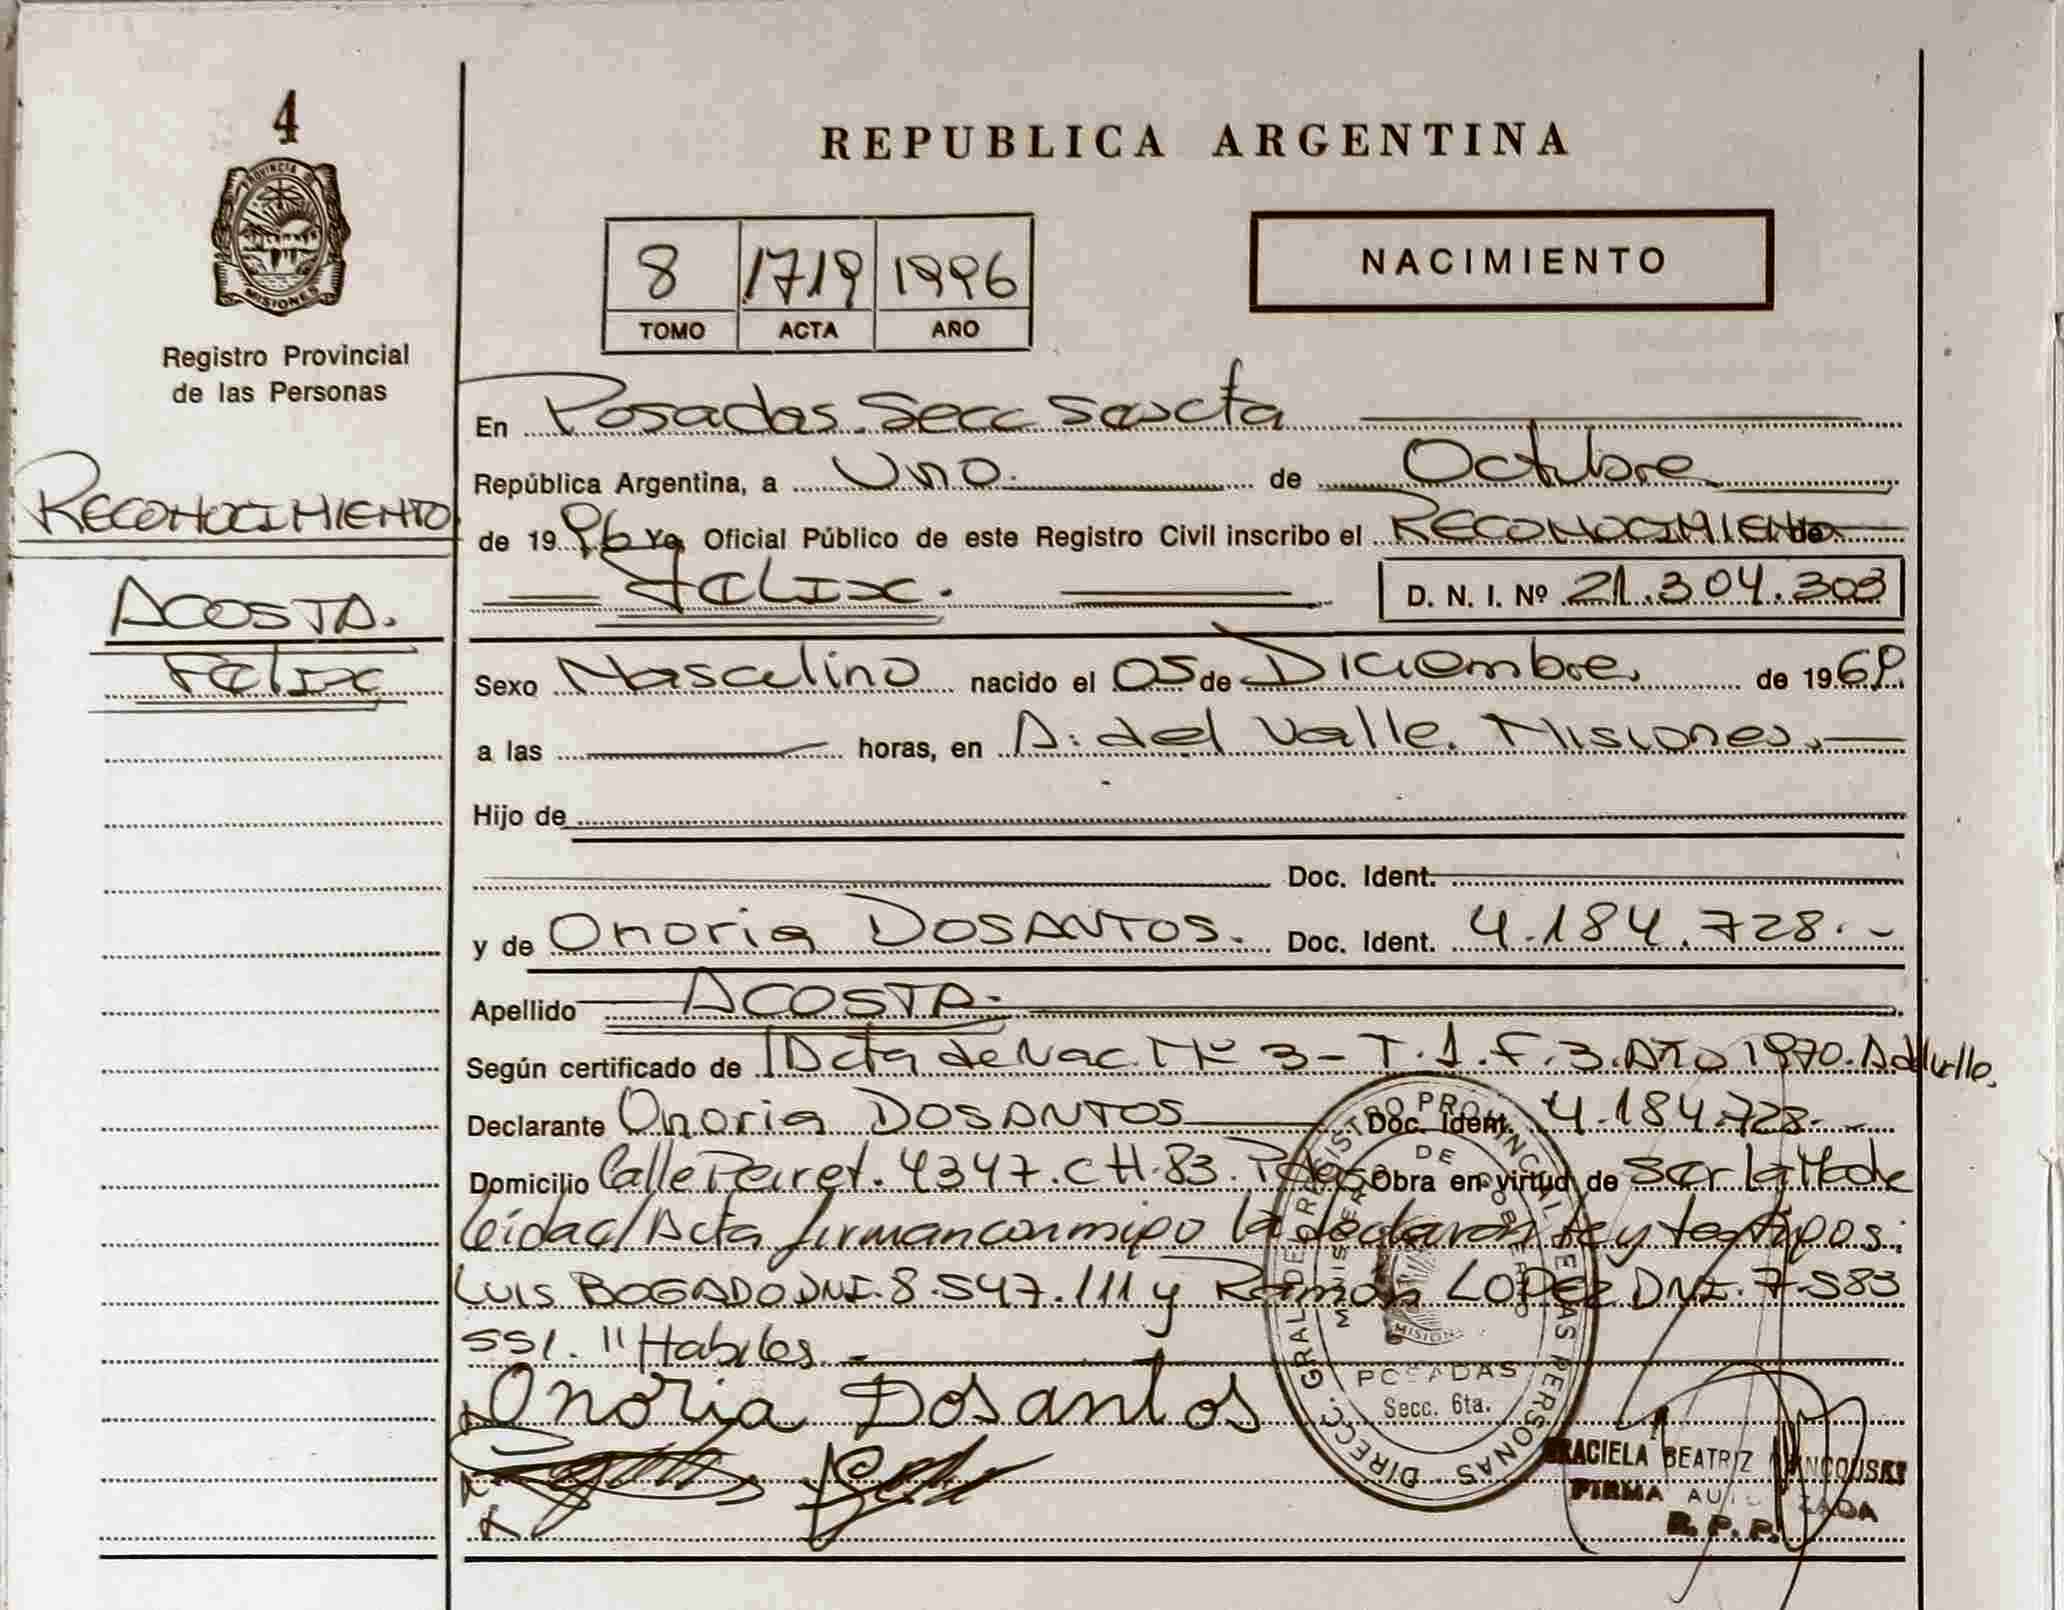 4
PROVINCIA DE
MISIONES
Registro Provincial
de las Personas
RECONOCIMIENTO
ACOSTA.
Felix
REPUBLICA ARGENTINA
8 1719 1996
TOMO ACTA AÑO
NACIMIENTO
En Posadas. Secc Sexta
República Argentina, a Uno. de Octubre
de 1996 Yo Oficial Público de este Registro Civil inscribo el RECONOCIMIENTO de
FELIX. D. N. I. Nº 21.304.303
Sexo Masculino nacido el 05 de Diciembre, de 1969.
a las horas, en A. del Valle. Misiones.
Hijo de
Doc. Ident.
y de Onoria DOSANTOS. Doc. Ident. 4.184.728.-
Apellido ACOSTA.-
Según certificado de Acta de Nac. Nº 3 - T.1.F.3. Año 1970. A del Valle.
Declarante Onoria DOSANTOS Doc. Ident. 4.184.728.-
Domicilio Calle Peiret. 4347. CH. 83. Pdas Obra en virtud de ser la Madre
leída el Acta firman conmigo la declarante y testigos:
LUIS BOGADO DNI. 8.547.111 y Ramón LOPEZ DNI. 7.583
551. "Habiles.-
Onoria Dosantos
DIRECC. GRAL DE REGISTRO PROVINCIAL DE LAS PERSONAS
MINISTERIO DE GOBIERNO
MISIONES
POSADAS
Secc. 6ta.
GRACIELA BEATRIZ
FIRMA AUTORIZADA
R. P. P.